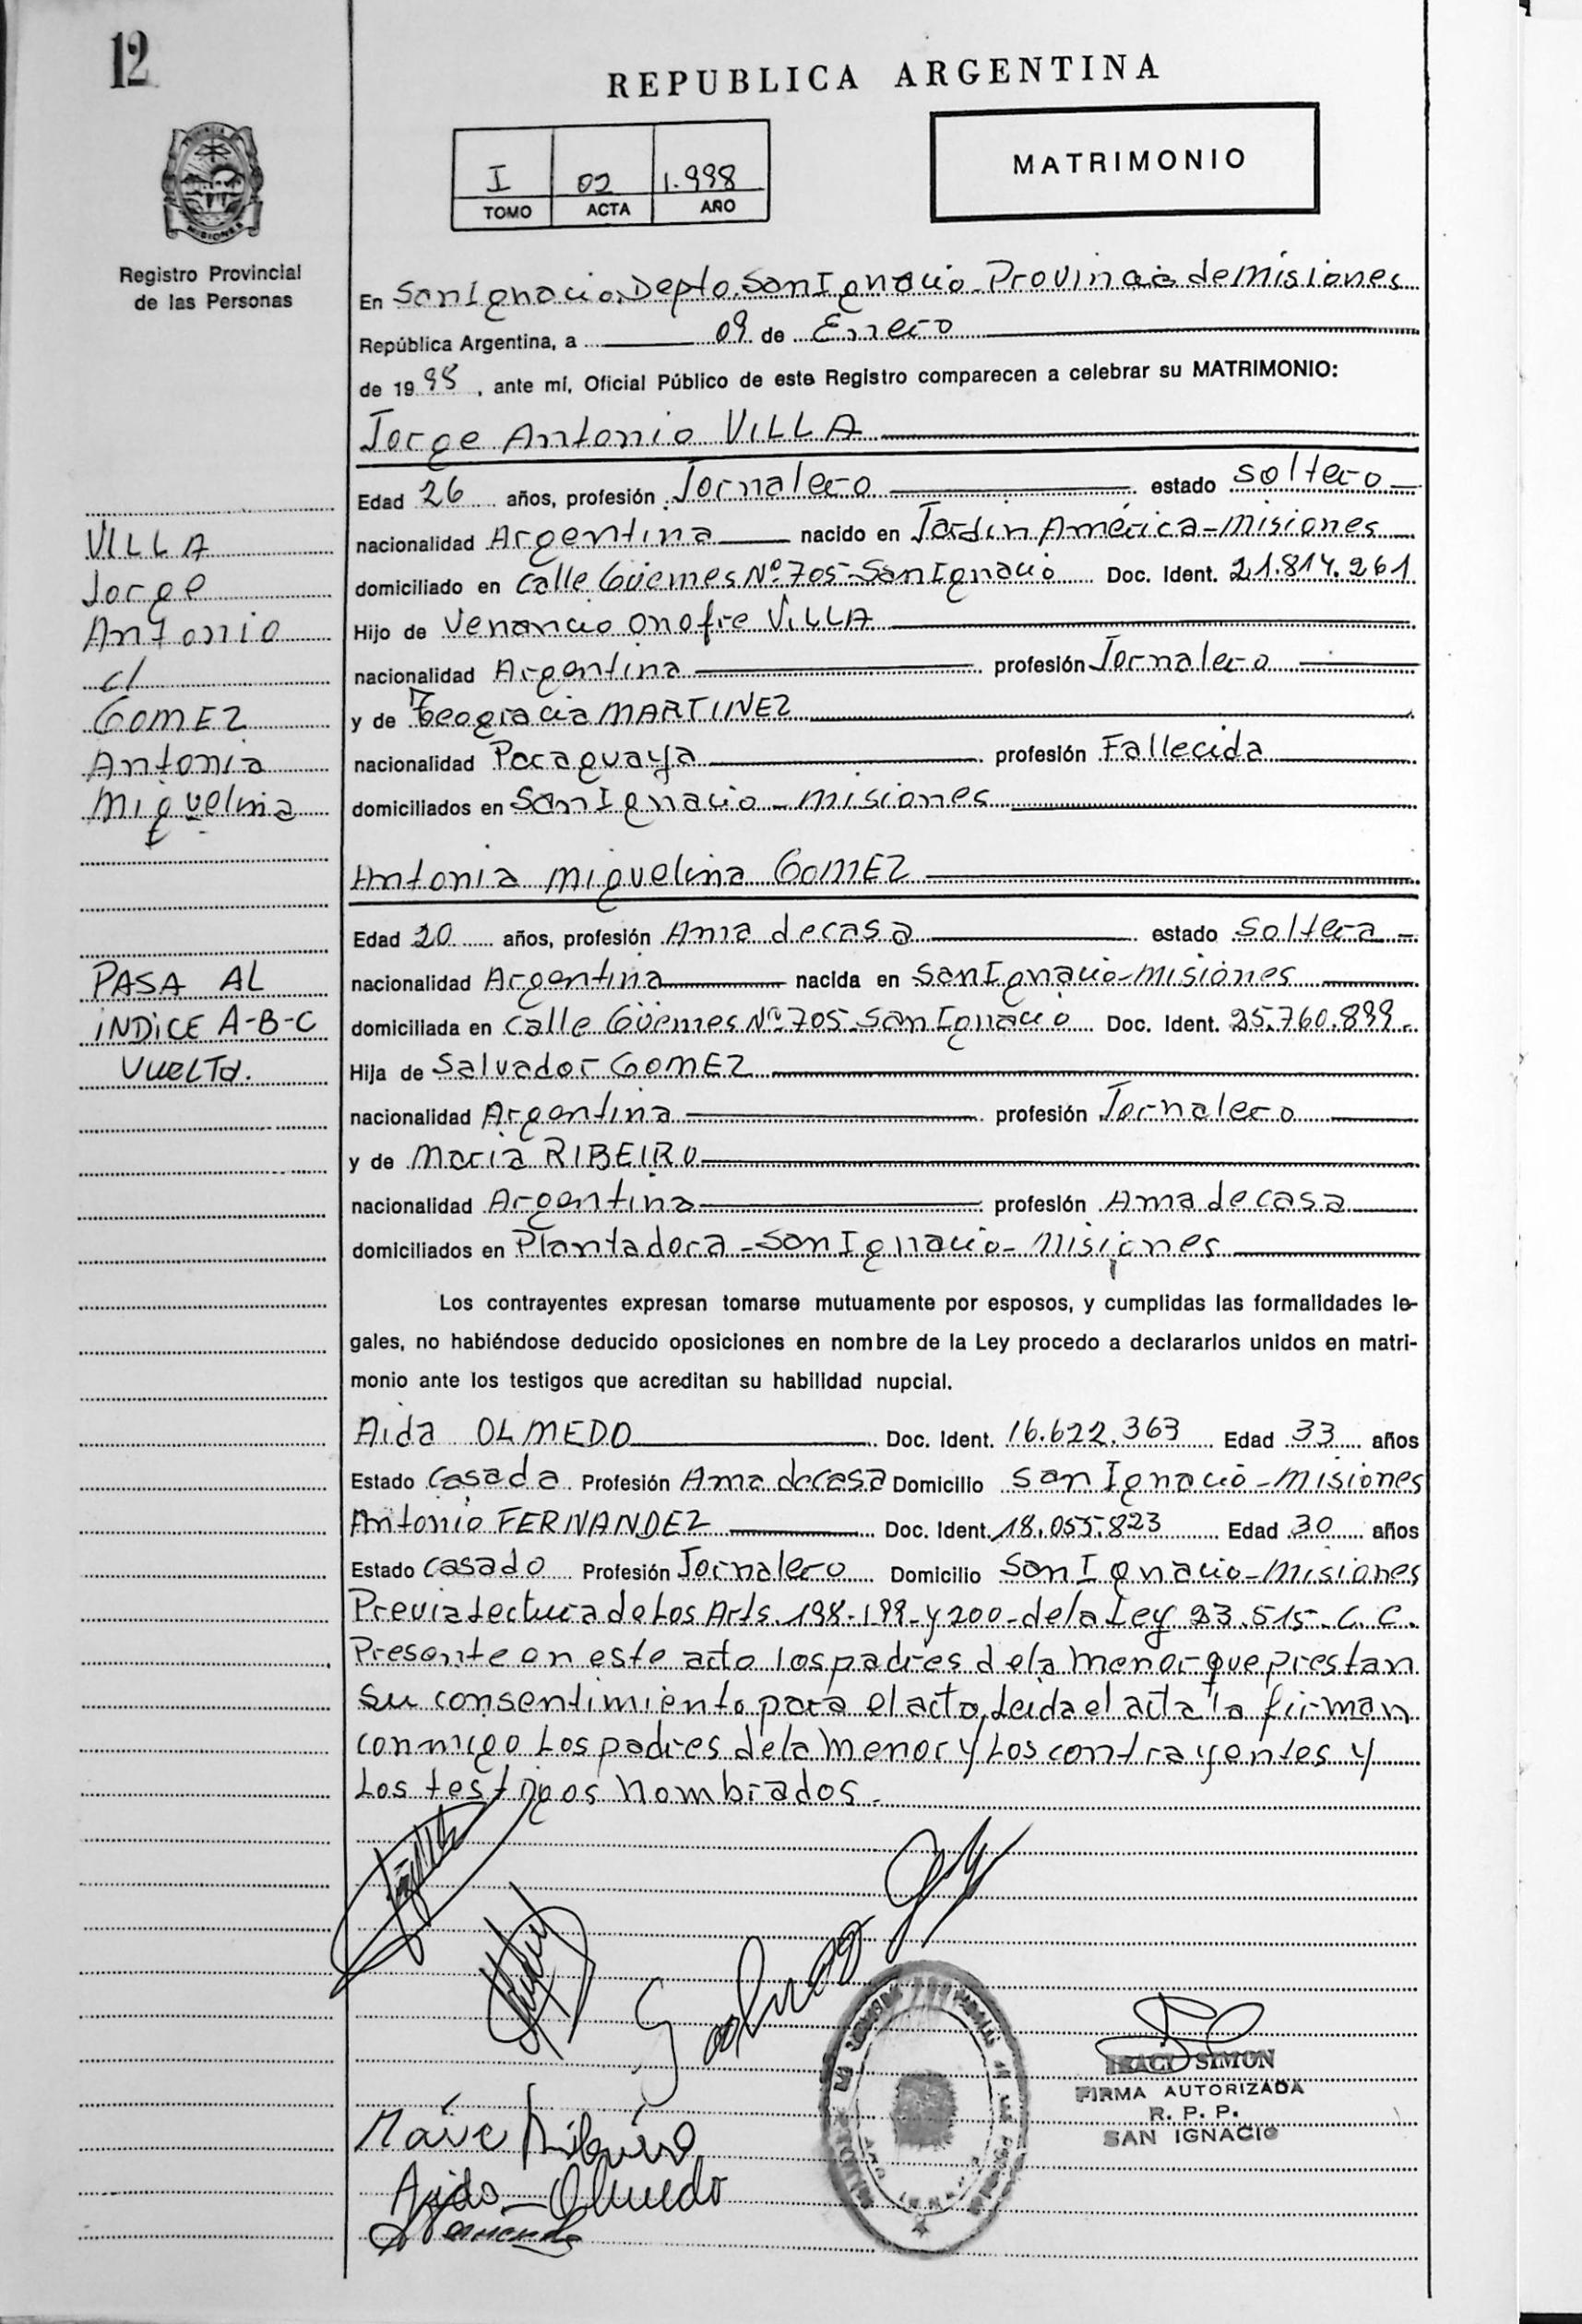 12
REPUBLICA ARGENTINA
I 02 1.998
TOMO ACTA AÑO
MATRIMONIO
MISIONES
Registro Provincial
de las Personas
En San Ignacio. Depto. San Ignacio - Provincia de Misiones
República Argentina, a 09 de Enero
de 19 98, ante mí, Oficial Público de este Registro comparecen a celebrar su MATRIMONIO:
Jorge Antonio VILLA
Edad 26 años, profesión Jornalero estado soltero
nacionalidad Argentina nacido en Jardin América - Misiones
domiciliado en calle Güemes Nº 705 - San Ignacio Doc. Ident. 21.814.261
Hijo de Venancio Onofre VILLA
nacionalidad Argentina profesión Jornalero
y de MARTINEZ
nacionalidad Paraguaya profesión Fallecida
domiciliados en San Ignacio - Misiones
VILLA
Jorge
Antonio
c/
GOMEZ
Antonia
Miguelina
Antonia Miguelina GOMEZ
Edad 20 años, profesión Ama de casa estado soltera -
nacionalidad Argentina nacida en San Ignacio - Misiones
domiciliada en calle Güemes Nº 705 - San Ignacio Doc. Ident. 25.760.899.
Hija de Salvador GOMEZ
nacionalidad Argentina profesión Jornalero
y de Maria RIBEIRO
nacionalidad Argentina profesión Ama de casa
domiciliados en Plantadora - San Ignacio - Misiones
PASA AL
INDICE A-B-C
VUELTA.
Los contrayentes expresan tomarse mutuamente por esposos, y cumplidas las formalidades le-
gales, no habiéndose deducido oposiciones en nombre de la Ley procedo a declararlos unidos en matri-
monio ante los testigos que acreditan su habilidad nupcial.
Aida OLMEDO Doc. Ident. 16.622.363 Edad 33 años
Estado casada Profesión Ama de casa Domicilio San Ignacio - Misiones
Antonio FERNANDEZ Doc. Ident. 18.055.823 Edad 30 años
Estado casado Profesión Jornalero Domicilio San Ignacio - Misiones
Previa Lectura de Los Arts. 198-199-y 200-de la Ley 23.515-C.C.
Presente en este acto los padres de la menor que prestan
su consentimiento para el acto, Leida el acta la firman
conmigo Los padres de la menor y Los contrayentes y
Los testigos nombrados.
Salvador
Maria Ribeiro
Aida Olmedo
SIMON
FIRMA AUTORIZADA
R. P. P.
SAN IGNACIO